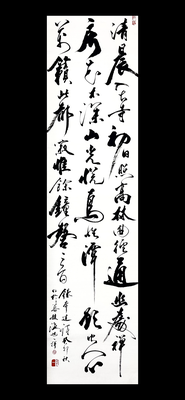 清晨入古寺初日照高林曲徑通幽處禪
房花木深山光悦鳥性潭影空人心
萬籟此都寂惟餘鐘磬音